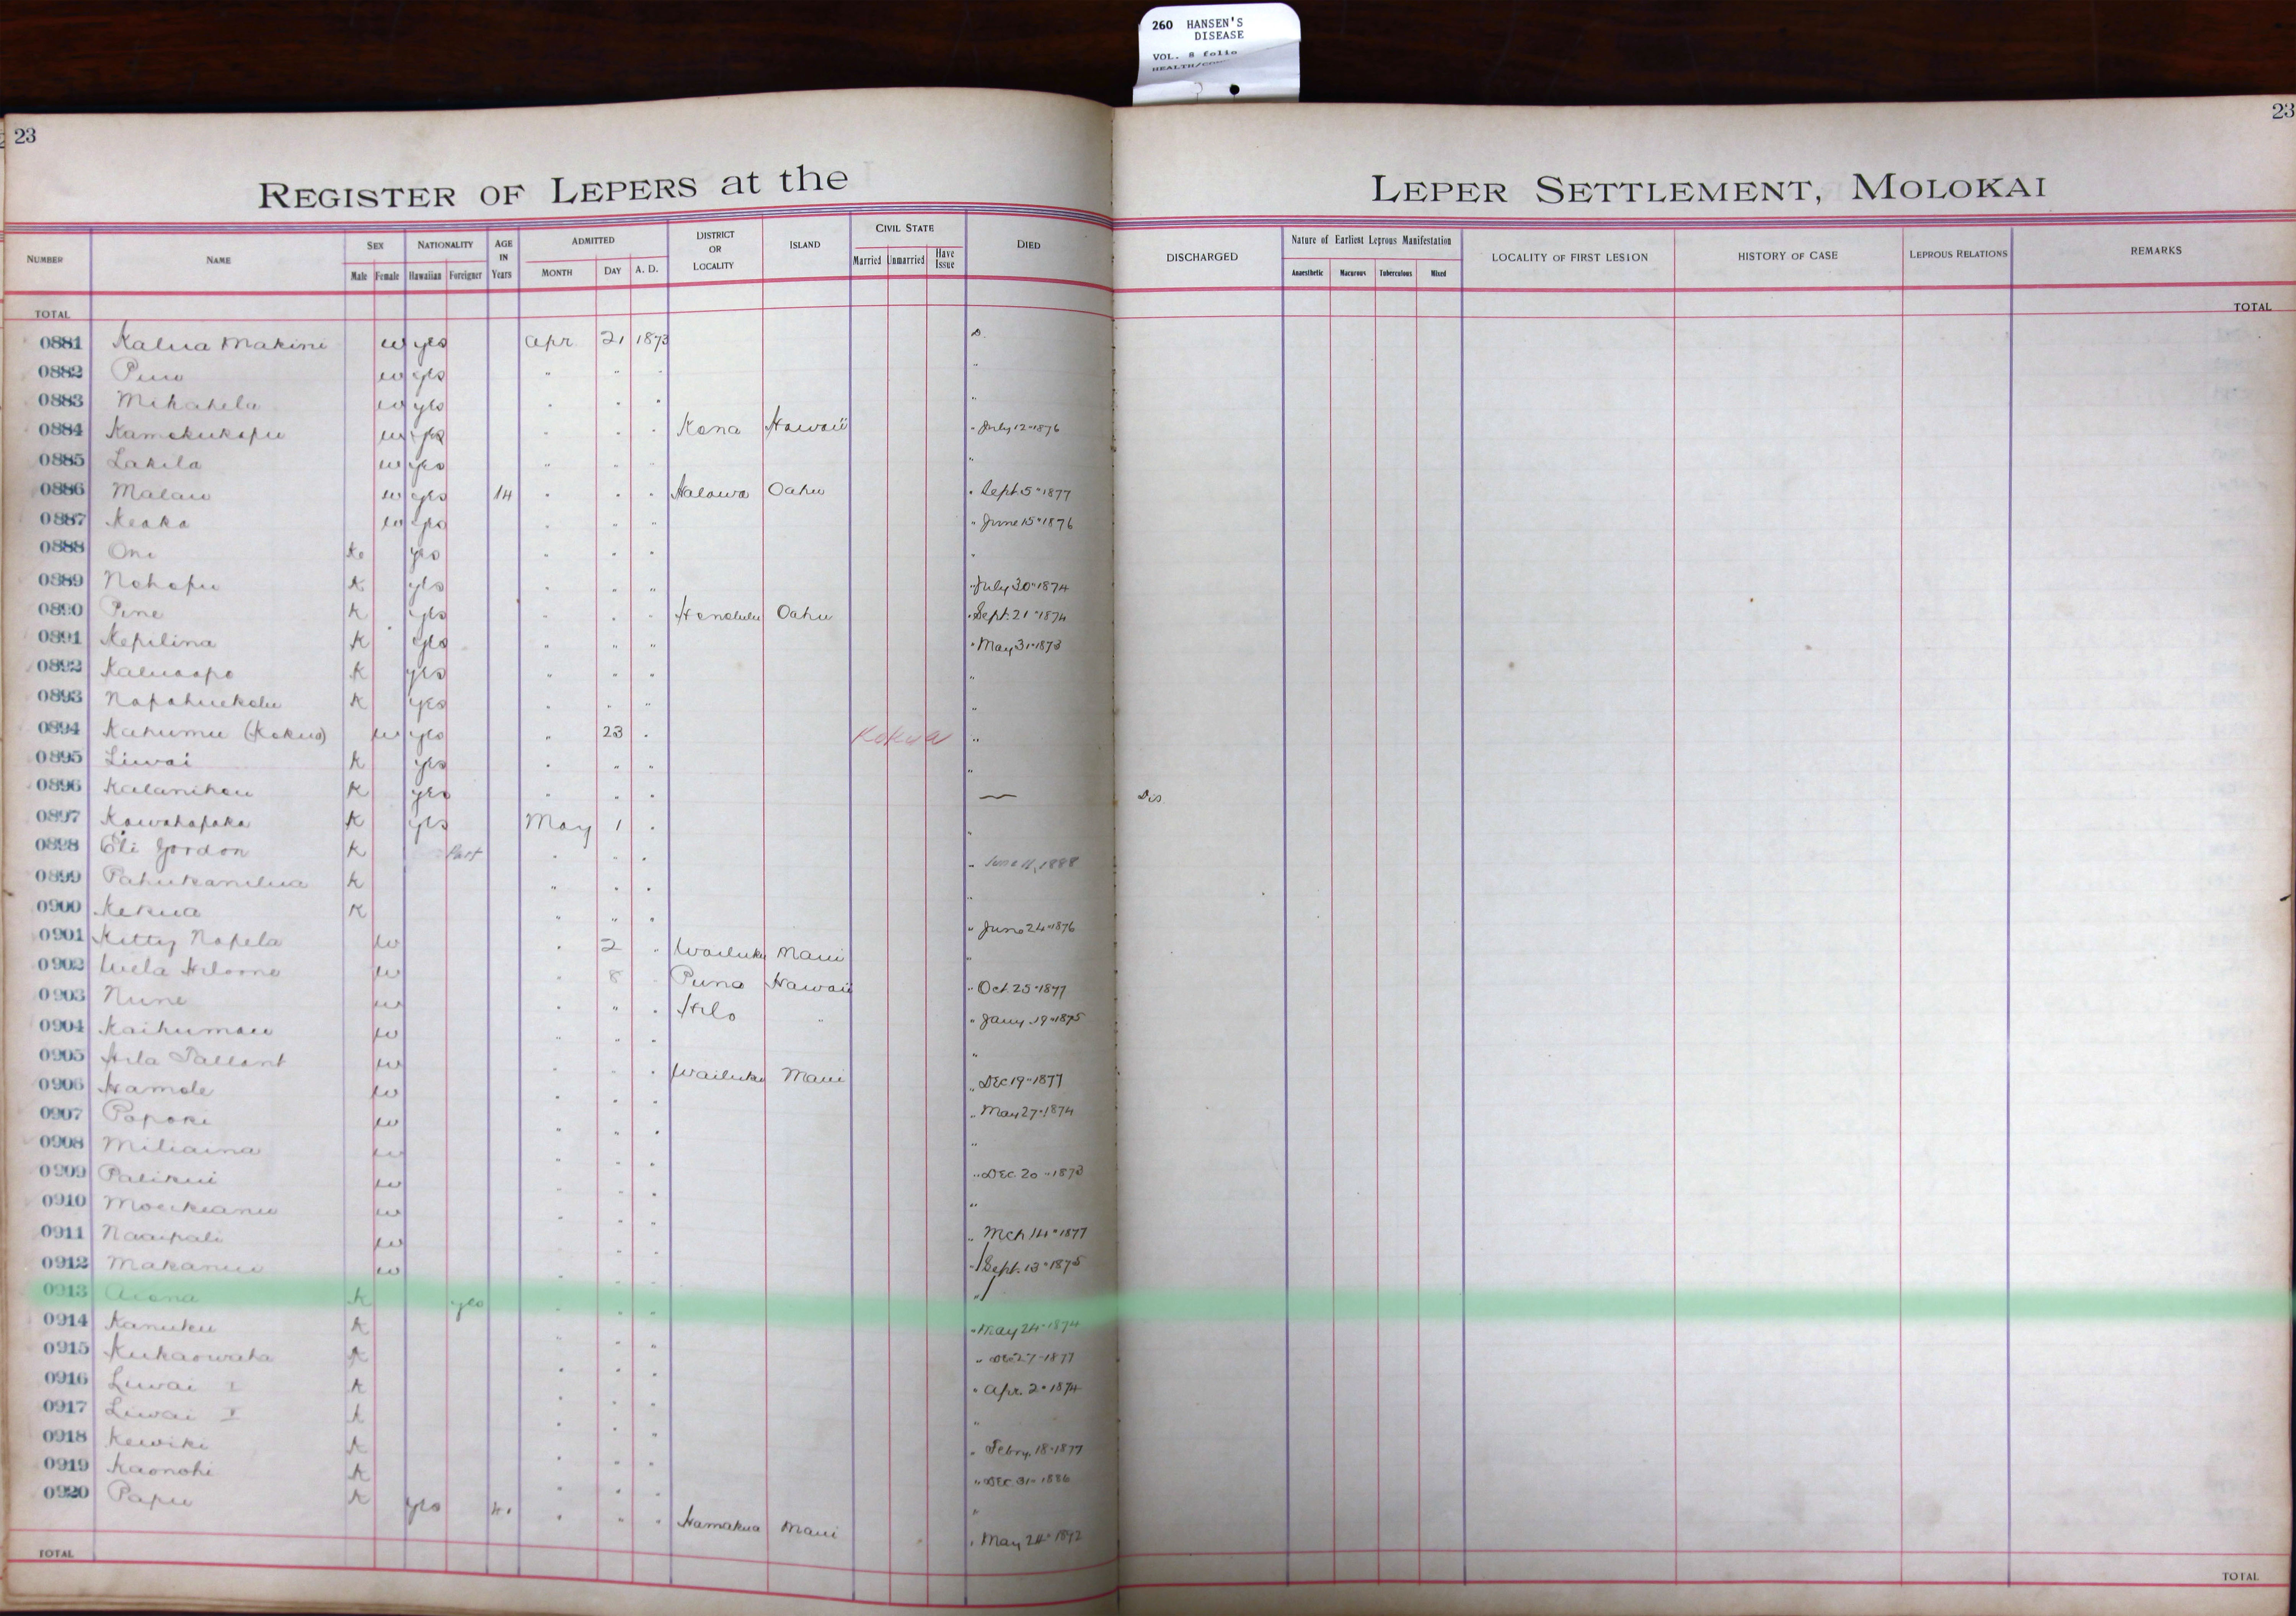 260 HANSEN'S
DISEASE
VOL. 8 folio
23
23
REGISTER OF LEPERS at the LEPER SETTLEMENT, MOLOKAI
NUMBER NAME SEX NATIONALITY AGE IN Years ADMITTED DISTRICT OR LOCALITY ISLAND CIVIL STATE DIED DISCHARGED Nature of Earliest Leprous Manifestation LOCALITY OF FIRST LESION HISTORY OF CASE LEPROUS RELATIONS REMARKS
Male Female Hawaiian Foreigner MONTH DAY A. D. Married Unmarried Have Issue Anaesthetic Macurous Tuberculous Mixed
TOTAL TOTAL
0881 Kalua Makini w yes Apr 21 1873 D.
0882 w yes " " " "
0883 Mikahela w yes " " " "
0884 Kamokukapu w yes " " " Kona Hawaii " July 12 " 1876
0885 Lakila w yes " " " "
0886 Malau w yes 14 " " " Halawa Oahu " Sept. 5 " 1877
0887 Keaka w yes " " " " June 15 " 1876
0888 Oni K yes " " " "
0889 Nohopu K yes " " " " July 30 " 1874
0890 Pine K yes " " " Honolulu Oahu " Sept. 21 " 1874
0891 Kepilina K yes " " " " May 31 " 1873
0892 Kaluaapo K yes " " " "
0893 Napahuekolu K yes " " " "
0894 Kahumu (Kokua) w yes " 23 " Kokua "
0895 Liwai K yes " " " "
0896 Kalanihou K yes " " " — Dis
0897 Kawahapaka K yes May 1 " "
0898 Eli Gordon K Part " " " " June 11, 1888
0899 Pahukanilua K " " " "
0900 Kekua K " " " " June 24 " 1876
0901 Kitty Napela w " 2 " Wailuku Maui "
0902 w " 8 " Puna Hawaii " Oct. 25 " 1877
0903 Nune w " " " Hilo " " Jany. 19 " 1875
0904 Kaihumau w " " " "
0905 Hila Tallant w " " " Wailuku Maui " Dec 19 " 1877
0906 Hamole w " " " " May 27 " 1874
0907 Papoki w " " " "
0908 Miliaina w " " " " Dec. 20 " 1873
0909 Palikui w " " " "
0910 Moeikeanu w " " " " Mch 14 " 1877
0911 Naaipali w " " " " Sept. 13 " 1875
0912 Makanui w " " " "
0913 Aiona K yes " " " " May 24 " 1874
0914 Kanuku K " " " " Dec 27 " 1877
0915 Kukaowaha K " " " " Apr. 2 " 1874
0916 Liwai I K " " " "
0917 Liwai K " " " " Febry. 18 " 1877
0918 Kewiki K " " " " Dec. 31 " 1886
0919 Kaonohi K " " " "
0920 Papu K yes " " " Hamakua Maui " May 24 " 1892
TOTAL TOTAL